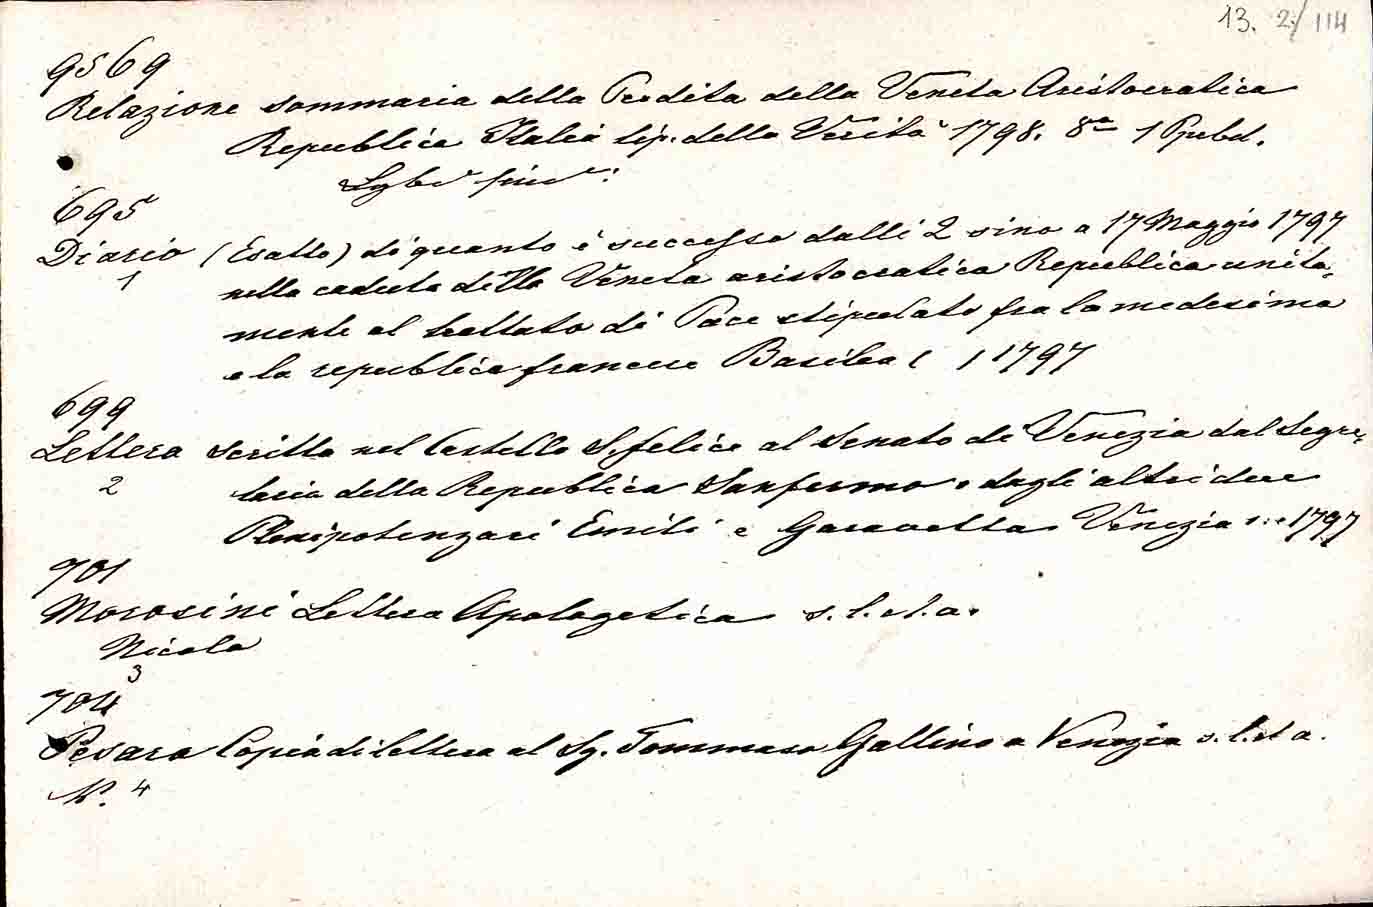 13. 2/114
9569
Relazione sommaria della Perdita della Veneta Aristocratica
Republica Italia tip. della Verità 1798. 8°
695
Diario (Esatto) di quanto è successo dalli 2 sino a 17 Maggio 1797
1
nella caduta della Veneta aristocratica Republica unita-
mente al trattato di Pace stipulato fra la medesima
e la republica francese Basilea 1797
699
Lettera scritta nel Castello S. felice al Senato di Venezia dal Segre-
2
tario della Republica Sanfermo e dagli altri due
Plenipotenzari Emili e Garavetta Venezia 1797
701
Morosini Lettera Apologetica s. l. et. a.
Nicola
3
704
Pesaro Copia di lettera al Sg. Tommaso Gallino a Venezia s. l. et a.
4